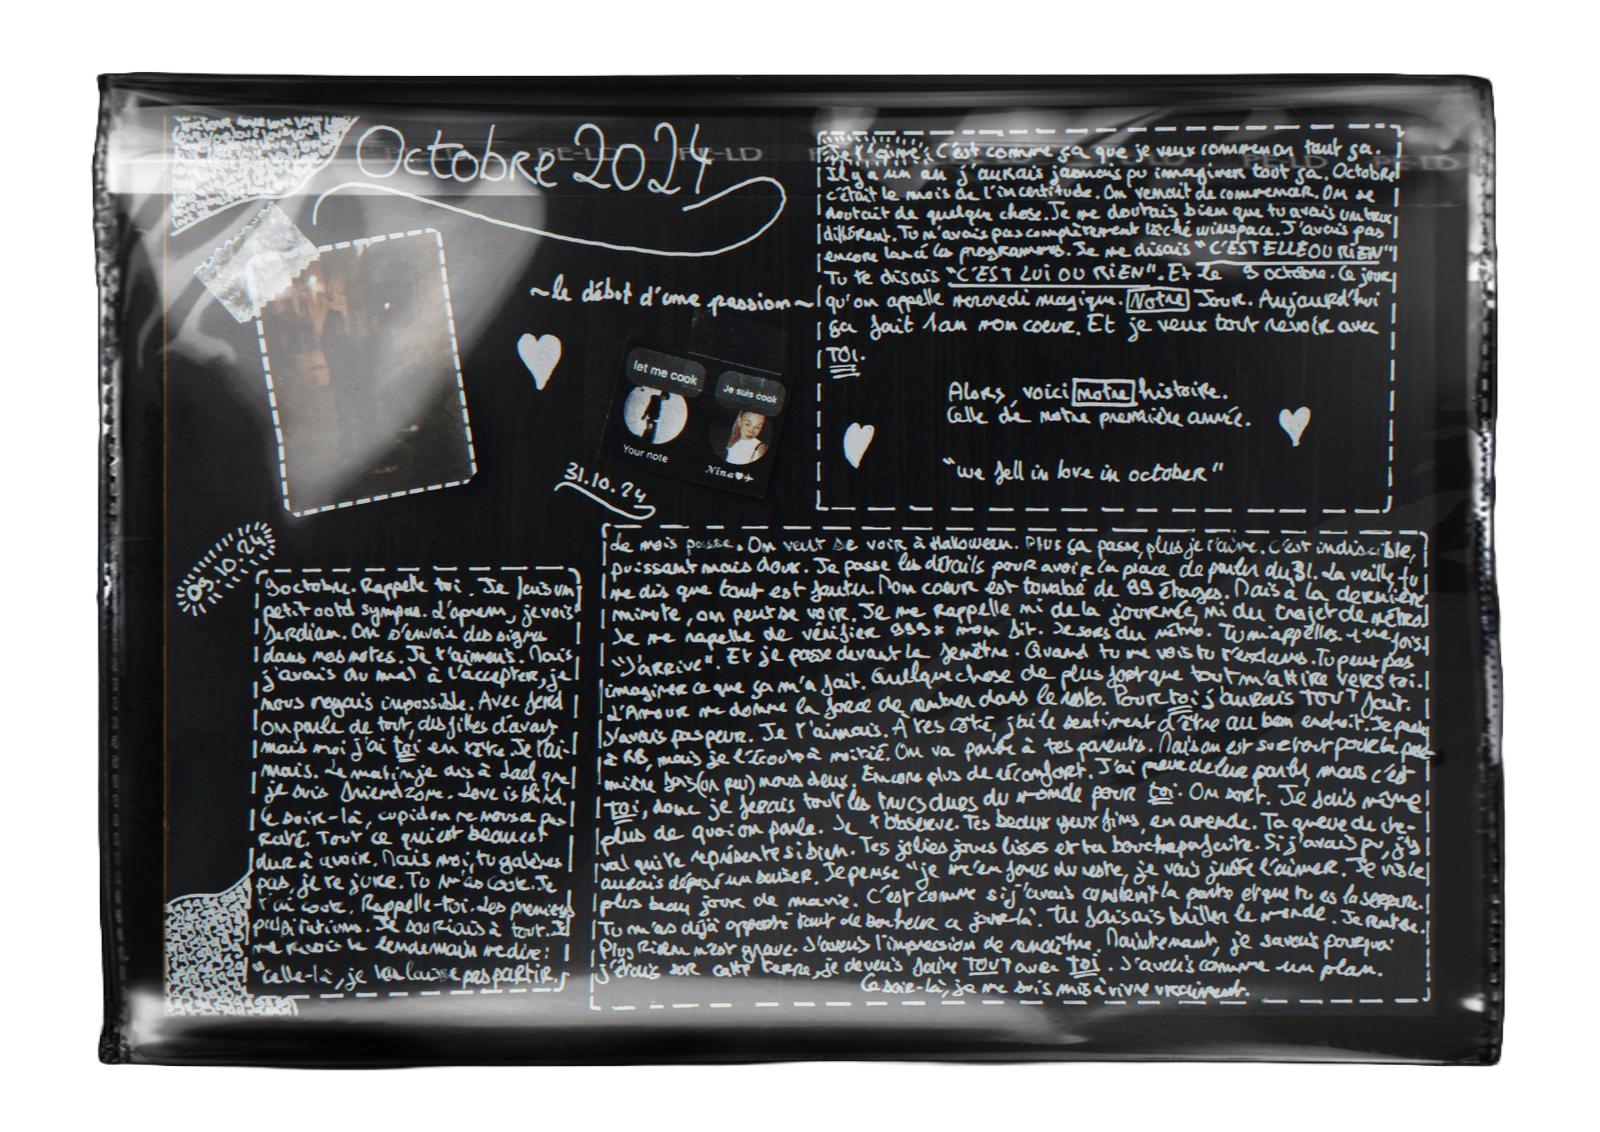 Octobre 2024
~le début d'une passion~
let me cook
Je suis cook
Your note
Nina
31.10.24
Je t'aime. C'est comme ça que je veux commencer tout ça.
Il y a un an j'aurais jamais pu imaginer tout ça. Octobre
c'était le mois de l'incertitude. On venait de commencer. On se
doutait de quelque chose. Je me doutais bien que tu avais un truc
différent. Tu m'avais pas complètement lâché winspace. J'avais pas
encore lancé les programmes. Je me disais "C'EST ELLE OU RIEN"
Tu te disais "C'EST LUI OU RIEN". Et le 9 octobre. Ce jour
qu'on appelle mercredi magique. Notre Jour. Aujourd'hui
ça fait 1 an mon coeur. Et je veux tout revoir avec
TOI.
Alors, voici notre histoire.
Celle de notre première année.
"we fell in love in october"
09.10.24
9 octobre. Rappelle toi. Je fais un
petit ootd sympas. L'aprem, je vois
Ferdian. On s'envoie des signes
dans nos notes. Je t'aimais. Mais
j'avais du mal à l'accepter, je
nous voyais impossible. Avec ferd
on parle de tout, des filles d'avant
mais moi j'ai toi en tête. Je t'ai-
mais. Le matin je dis à Jael que
je suis friendzone. Love is blind.
Ce soir-là, cupidon ne nous a pas
raté. Tout ce qui est beau est
dur à avoir. Mais moi, tu galères
pas, je te jure. Tu m'as cook. Je
t'ai cook. Rappelle-toi. Les premiers
palpitations. Je souriais à tout. Je
me revois le lendemain me dire:
"celle-là, je la laisse pas partir.
Le mois passe. On veut se voir à Halloween. Plus ça passe, plus je t'aime. C'est indiscible,
puissant mais doux. Je passe les détails pour avoir la place de parler du 31. La veille, tu
me dis que tout est foutu. Mon coeur est tombé de 99 étages. Mais à la dernière
minute, on peut se voir. Je me rappelle ni de la journée, ni du trajet de métro.
Je me rapelle de vérifier 999x mon fit. Je sors du métro. Tu m'appelles. fois
"J'arrive". Et je passe devant la fenêtre. Quand tu me vois tu t'exclames. Tu peux pas
imaginer ce que ça m'a fait. Quelque chose de plus fort que tout m'attire vers toi.
L'Amour me donne la force de rentrer dans le resto. Pour toi j'aurais TOUT fait.
J'avais pas peur. Je t'aimais. À tes côté, j'ai le sentiment d'être au bon endroit. Je parle
à RB, mais je l'écoute à moitié. On va parler à tes parents. Mais on est surtout pour la pre-
mière fois (un peu) nous deux. Encore plus de réconfort. J'ai peur de leur parler, mais c'est
toi, donc je ferais tout les trucs durs du monde pour toi. On sort. Je sais même
plus de quoi on parle. Je t'observe. Tes beaux yeux fins, en amende. Ta queue de che-
val qui te représente si bien. Tes jolies joues lisses et ta bouche parfaite. Si j'avais pu, j'y
aurais déposé un baiser. Je pense "je m'en fous du reste, je vais juste l'aimer. Je vis le
plus beau jour de ma vie. C'est comme si j'avais construit la porte et que tu es la serrure.
Tu m'as déjà apporté tant de bonheur ce jour-là. Tu faisais briller le monde. Je rentre.
Plus rien n'est grave. J'avais l'impression de renaître. Maintenant, je savais pourquoi
j'étais sur cette terre, je devais faire TOUT avec TOI. J'avais comme un plan.
Ce soir-là, je me suis mis à vivre vraiment.